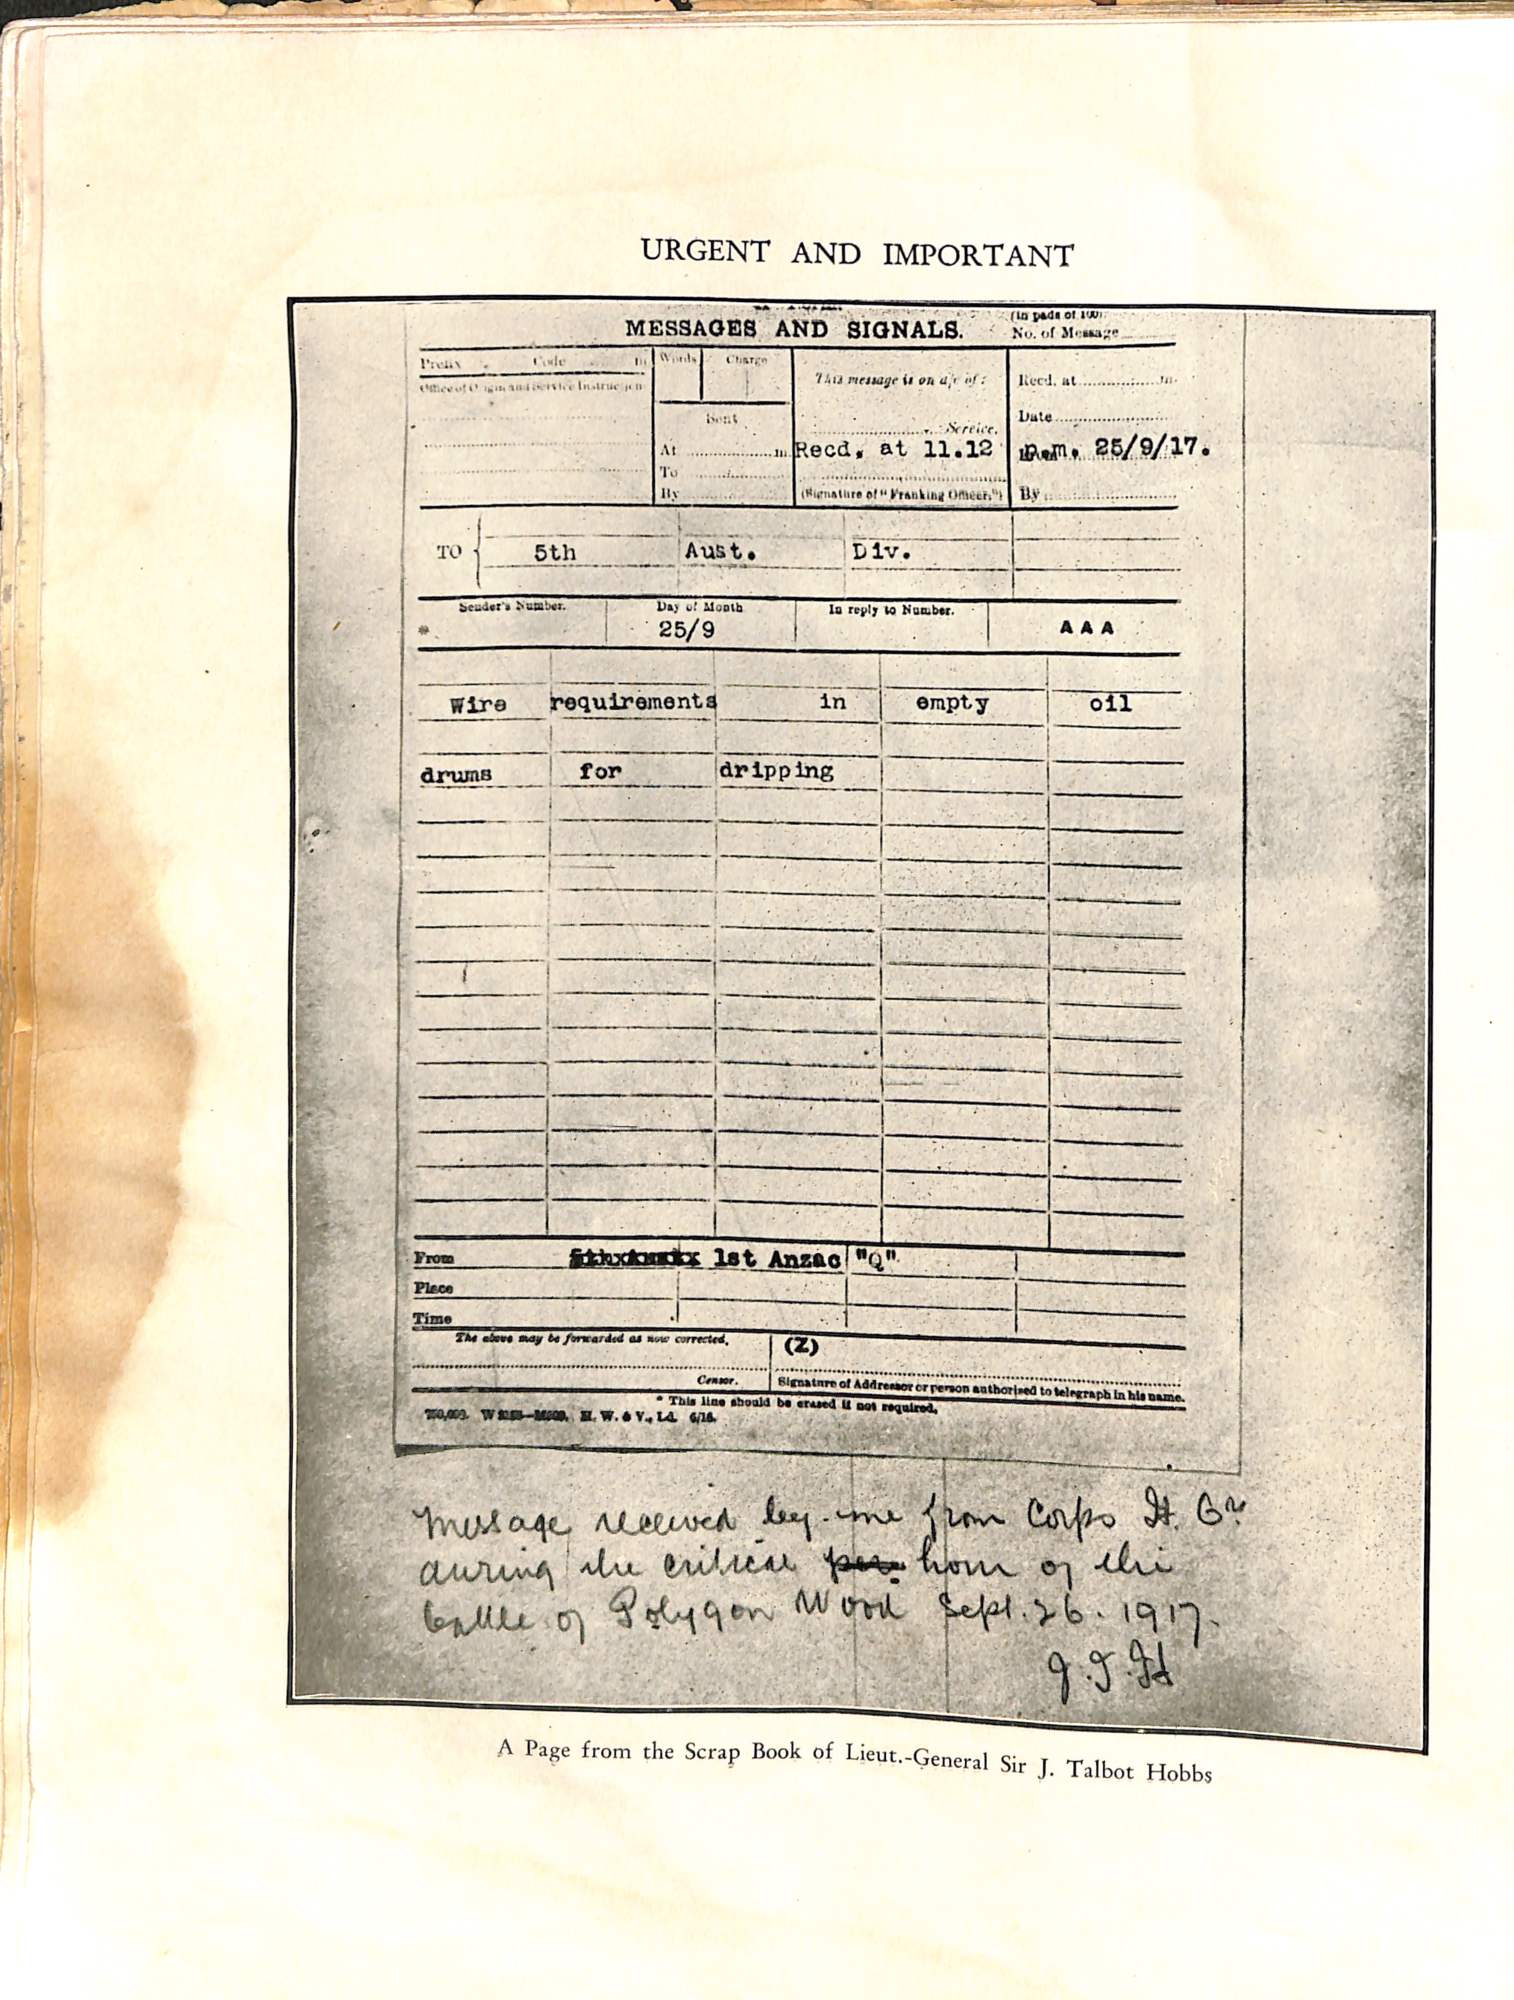 URGENT AND IMPORTANT
MESSAGES AND SIGNALS.
(in pads of 100)
No. of Message
Prefix Code m
Words Charge
This message is on a/c of:
Recd. at m.
Office of Origin and Service Instructions
Sent
Service.
Date
At m.
Recd. at 11.12 p.m. 25/9/17.
To
By
(Signature of "Franking Officer.")
By
TO 5th Aust. Div.
Sender's Number. Day of Month In reply to Number.
* 25/9 AAA
Wire requirements in empty oil
drums for dripping
From 1st Anzac "Q"
Place
Time
The above may be forwarded as now corrected. (Z)
Censor. Signature of Addressor or person authorised to telegraph in his name.
* This line should be erased if not required.
H. W. & V., Ld. 6/16.
Message received by me from Corps H. Qrs
during the critical hour of the
battle of Polygon Wood Sept. 26. 1917.
J.T.H
A Page from the Scrap Book of Lieut.-General Sir J. Talbot Hobbs